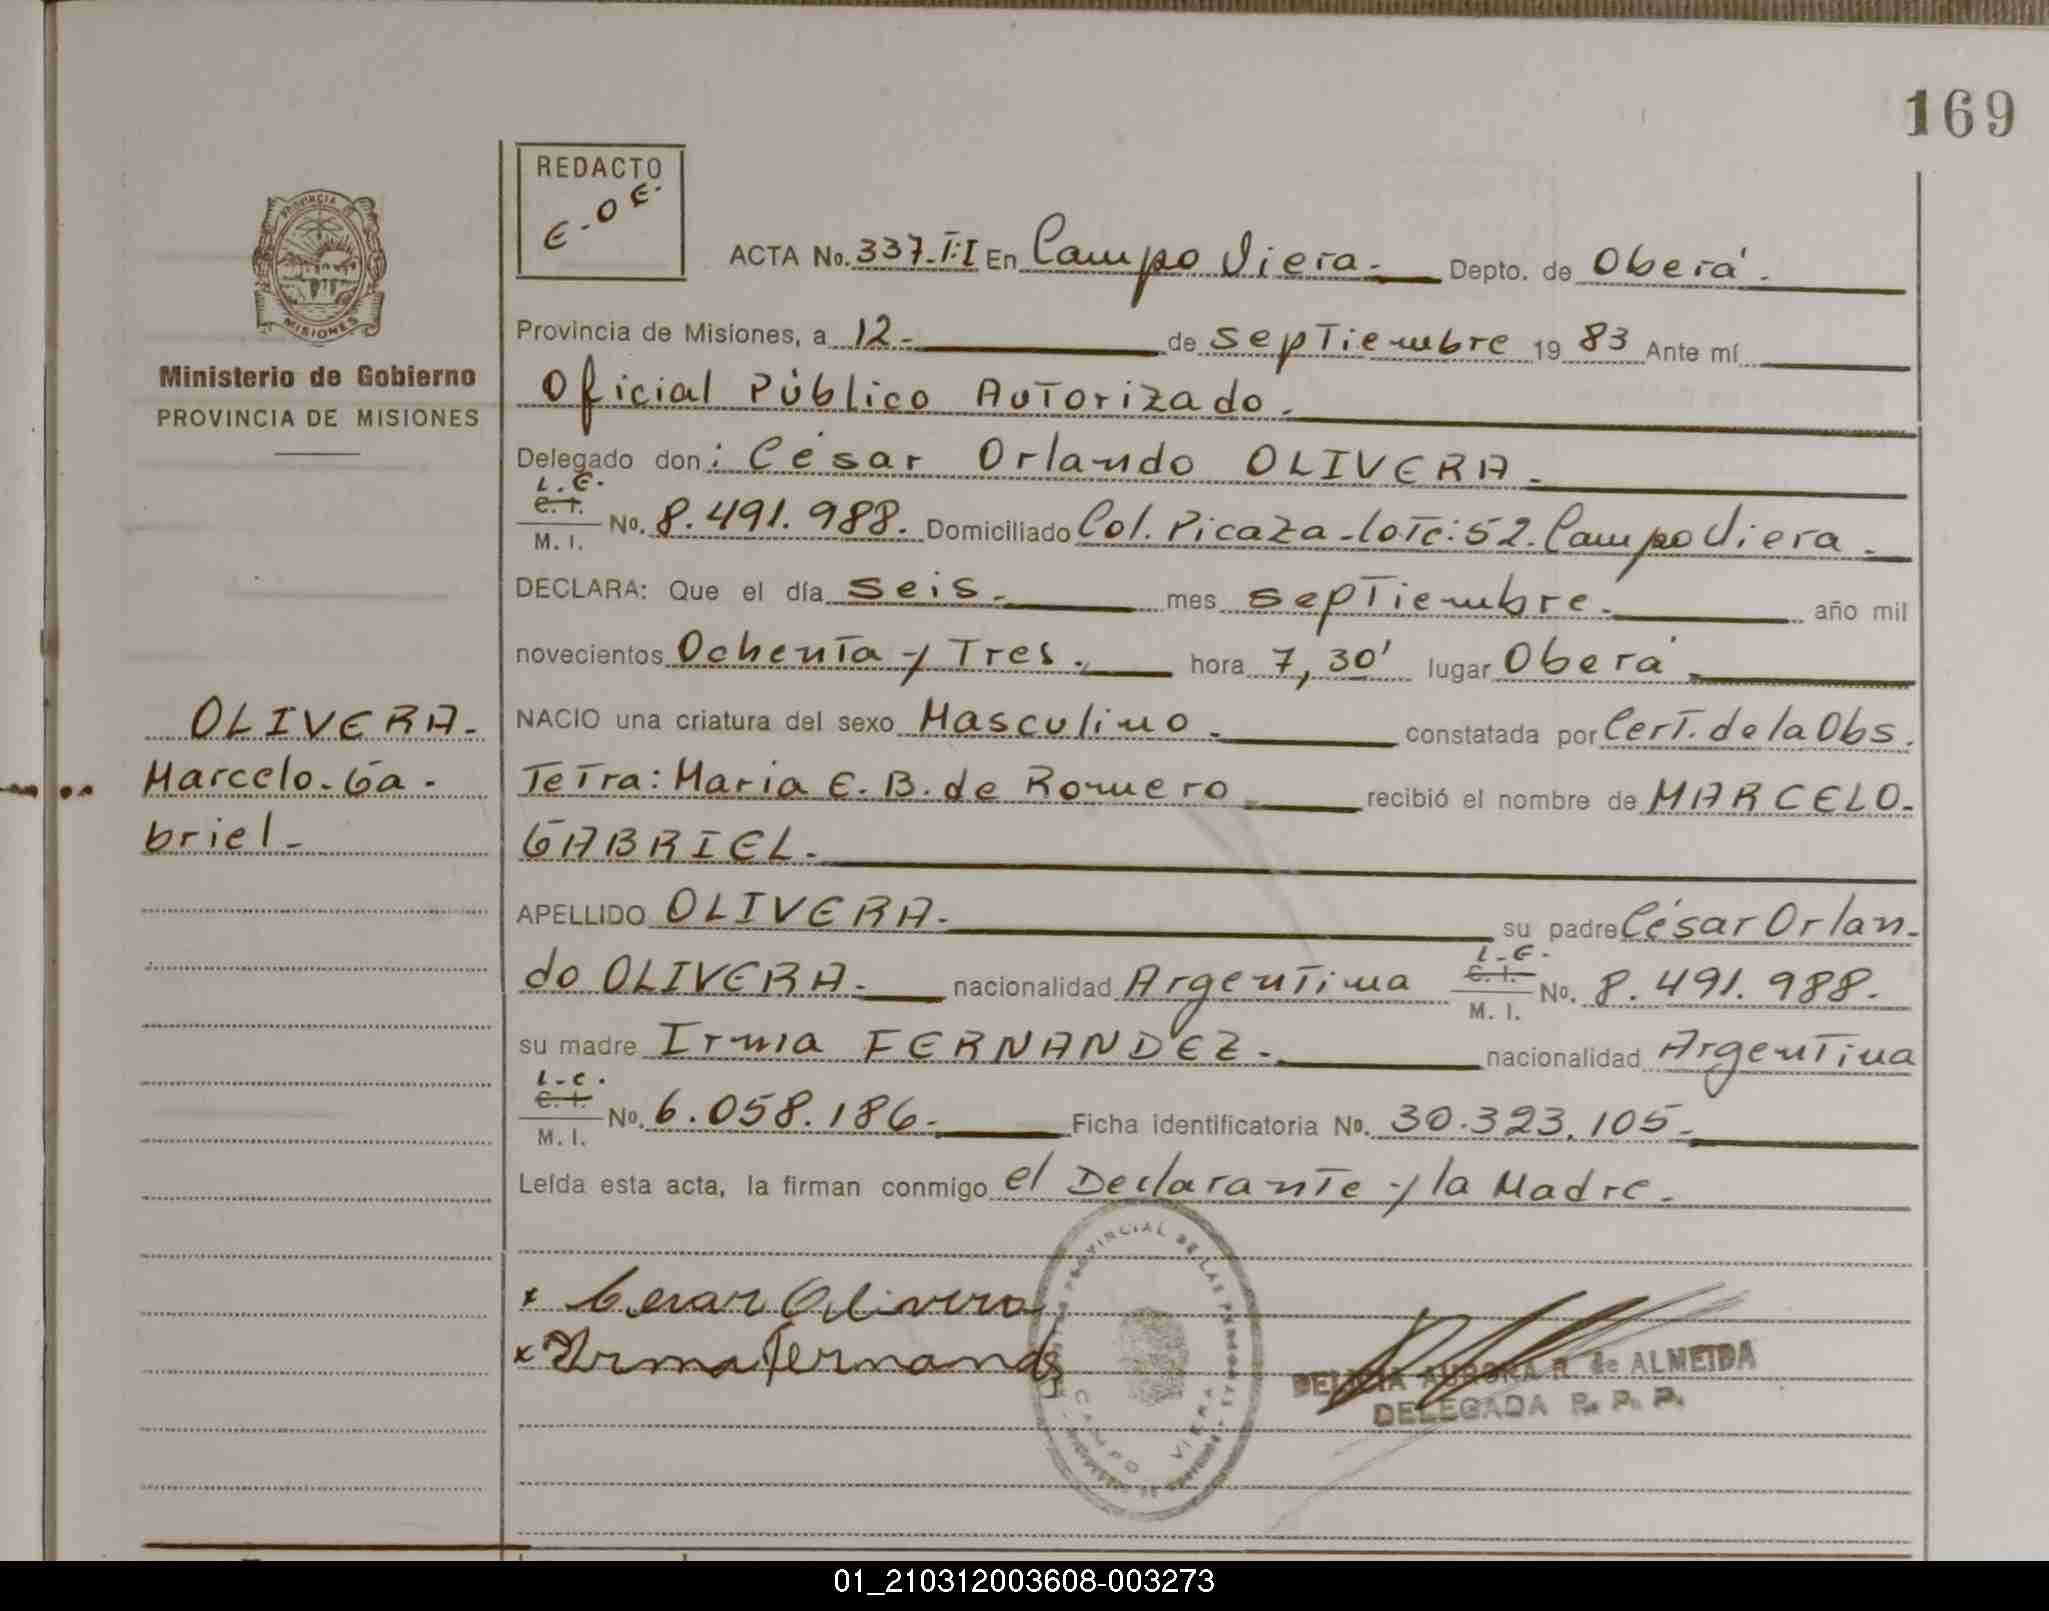 169
REDACTO
E-O E.
PROVINCIA
MISIONES
Ministerio de Gobierno
PROVINCIA DE MISIONES
ACTA No. 337-T:I En Campo Viera.- Depto. de Oberá.
Provincia de Misiones, a 12.- de Septiembre 19 83 Ante mí
Oficial Público Autorizado.
Delegado don: César Orlando OLIVERA.
L.E.
C. I.
M. I. No. 8.491.988. Domiciliado Col. Picaza-lote:52. Campo Viera.
DECLARA: Que el día Seis.- mes Septiembre.- año mil
novecientos Ochenta y Tres.- hora 7,30' lugar Oberá
NACIO una criatura del sexo Masculino.- constatada por Cert. de la Obs.
Tetra: Maria E. B. de Romero recibió el nombre de MARCELO.
GABRIEL.
OLIVERA.-
Marcelo.Ga-
briel.-
APELLIDO OLIVERA.- su padre César Orlan-
do OLIVERA.- nacionalidad Argentina L.E. C. I. M. I. No. 8.491.988.
su madre Irma FERNANDEZ.- nacionalidad Argentina
L.C.
C. I.
M. I. No. 6.058.186.- Ficha identificatoria No. 30.323.105.-
Leída esta acta, la firman conmigo el Declarante y la Madre.
x Cesar Olivera
x Irma Fernand
PROVINCIAL DE LAS PERSONAS
CAMPO VIERA
DELICIA AURORA R. de ALMEIDA
DELEGADA R. P. P.
01_210312003608-003273